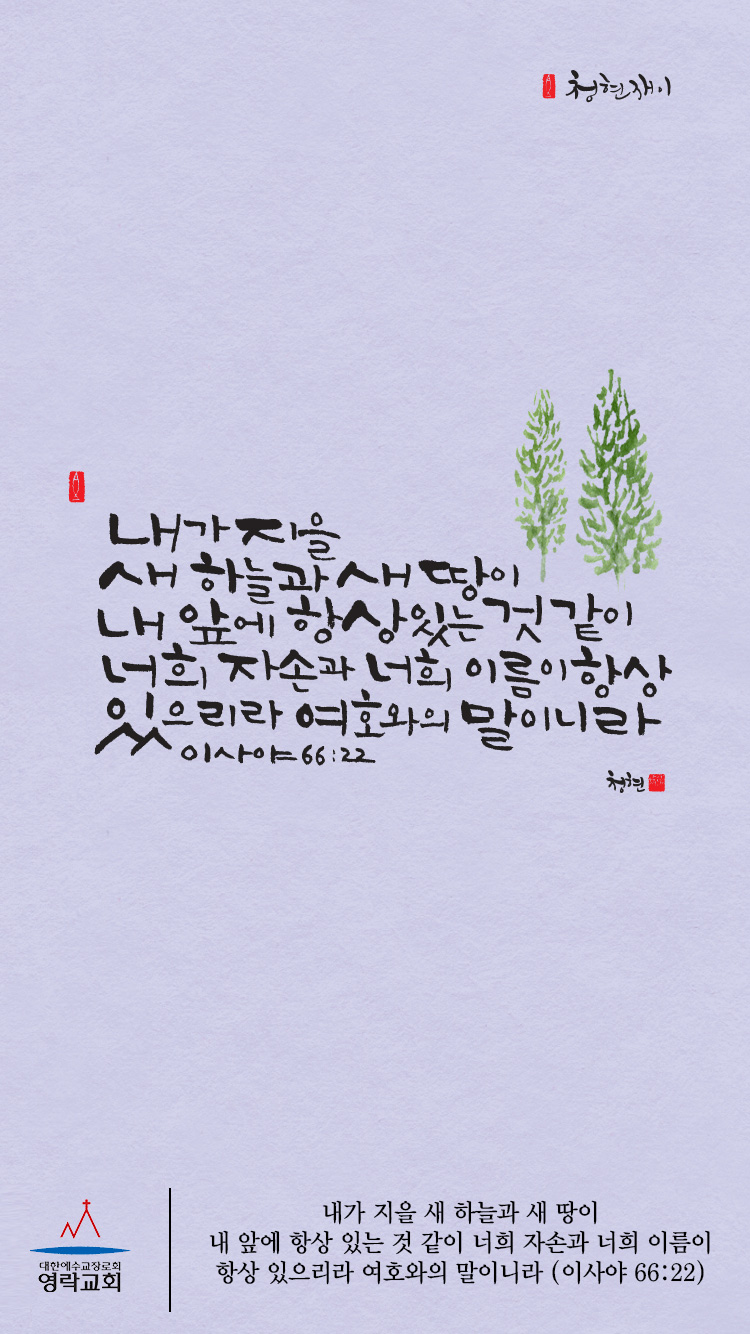 청현재이
내가 지을
새 하늘과 새 땅이
내 앞에 항상 있는 것 같이
너희 자손과 너희 이름이 항상
있으리라 여호와의 말이니라
이사야 66:22
청현
대한예수교장로회
영락교회
내가 지을 새 하늘과 새 땅이
내 앞에 항상 있는 것 같이 너희 자손과 너희 이름이
항상 있으리라 여호와의 말이니라 (이사야 66:22)